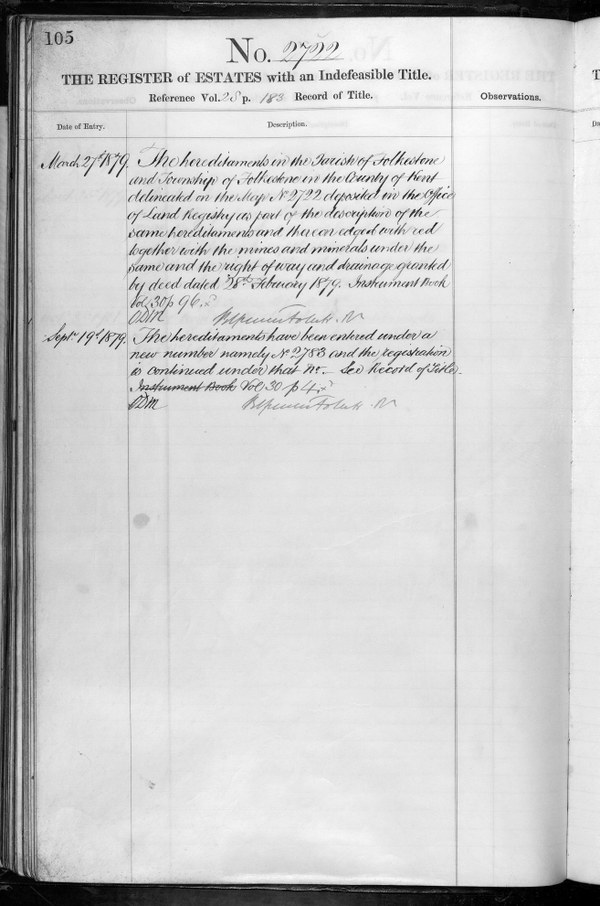 105
No. 2722
THE REGISTER of ESTATES with an Indefeasible Title.
Reference Vol. 28 p. 183 Record of Title.
Observations.
Date of Entry.
Description.
March 27th 1879.
The hereditaments in the Parish of Folkestone
and Township of Folkestone in the County of Kent
delineated on the Map No 2722 deposited in the Office
of Land Registry as part of the description of the
same hereditaments and thereon edged with red
together with the mines and minerals under the
same and the right of way and drainage granted
by deed dated 28th February 1879. Instrument Book
Vol 30 p 96.
ODM
Septr 19th 1879.
The hereditaments have been entered under a
new number namely No 2783 and the registration
is continued under that No. – See Record of Title.
Instrument Book Vol 30 p 4.
ODM